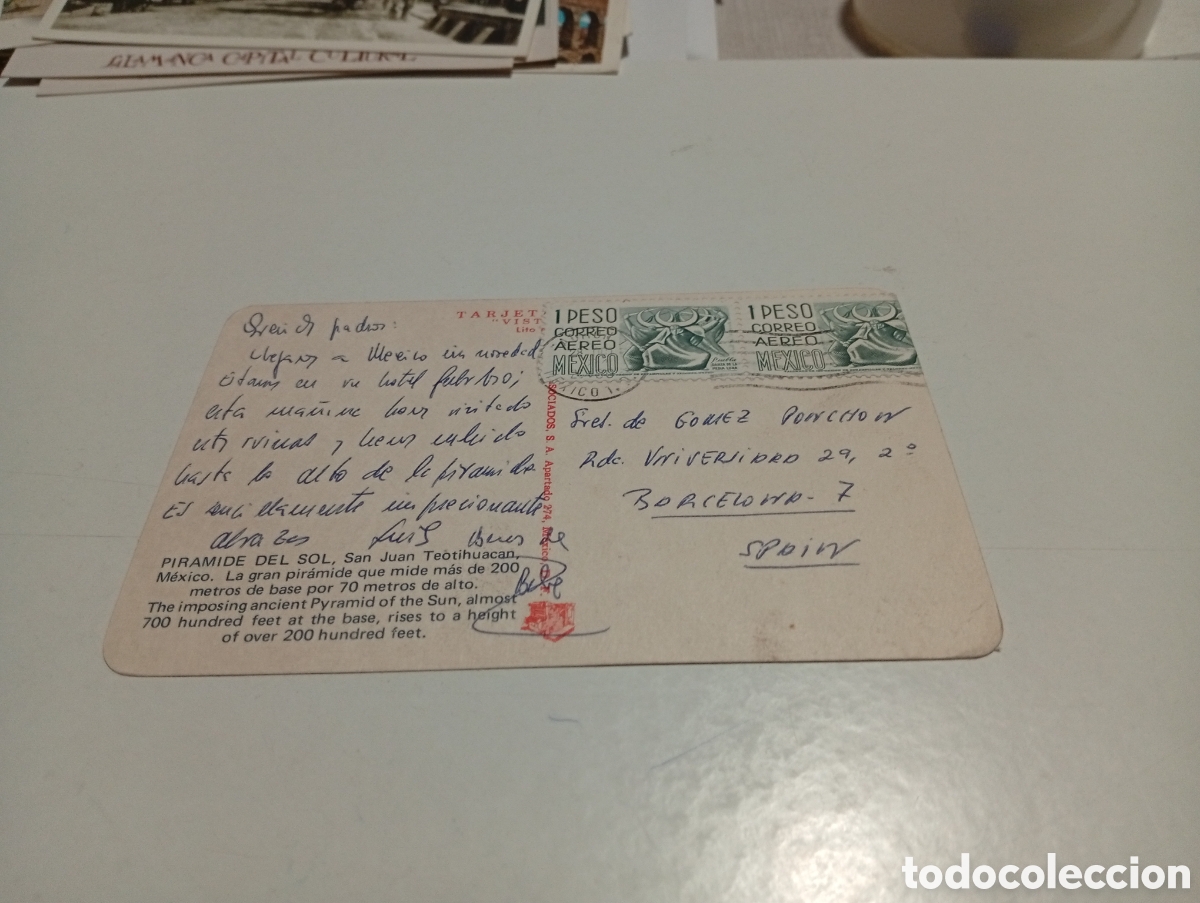 SALAMANCA CAPITAL CULTURAL
TARJET
"VIST
Lito
1 PESO
CORREO
AEREO
MEXICO
1 PESO
CORREO
AEREO
MEXICO
Queridos padres:
llegamos a Mexico sin novedad
Estamos en un hotel fabuloso;
esta mañana hemos visitado
estas ruinas y hemos subido
hasta lo alto de la piramide.
Es sencillamente impresionante
abrazos Luis Besos de
SOCIADOS, S. A. Apartado 274, México
Sres. de GOMEZ PONCHON
Rda. UNIVERSIDAD 29, 2º
BARCELONA - 7
SPAIN
PIRAMIDE DEL SOL, San Juan Teotihuacan,
México. La gran pirámide que mide más de 200
metros de base por 70 metros de alto.
The imposing ancient Pyramid of the Sun, almost
700 hundred feet at the base, rises to a height
of over 200 hundred feet.
todocoleccion